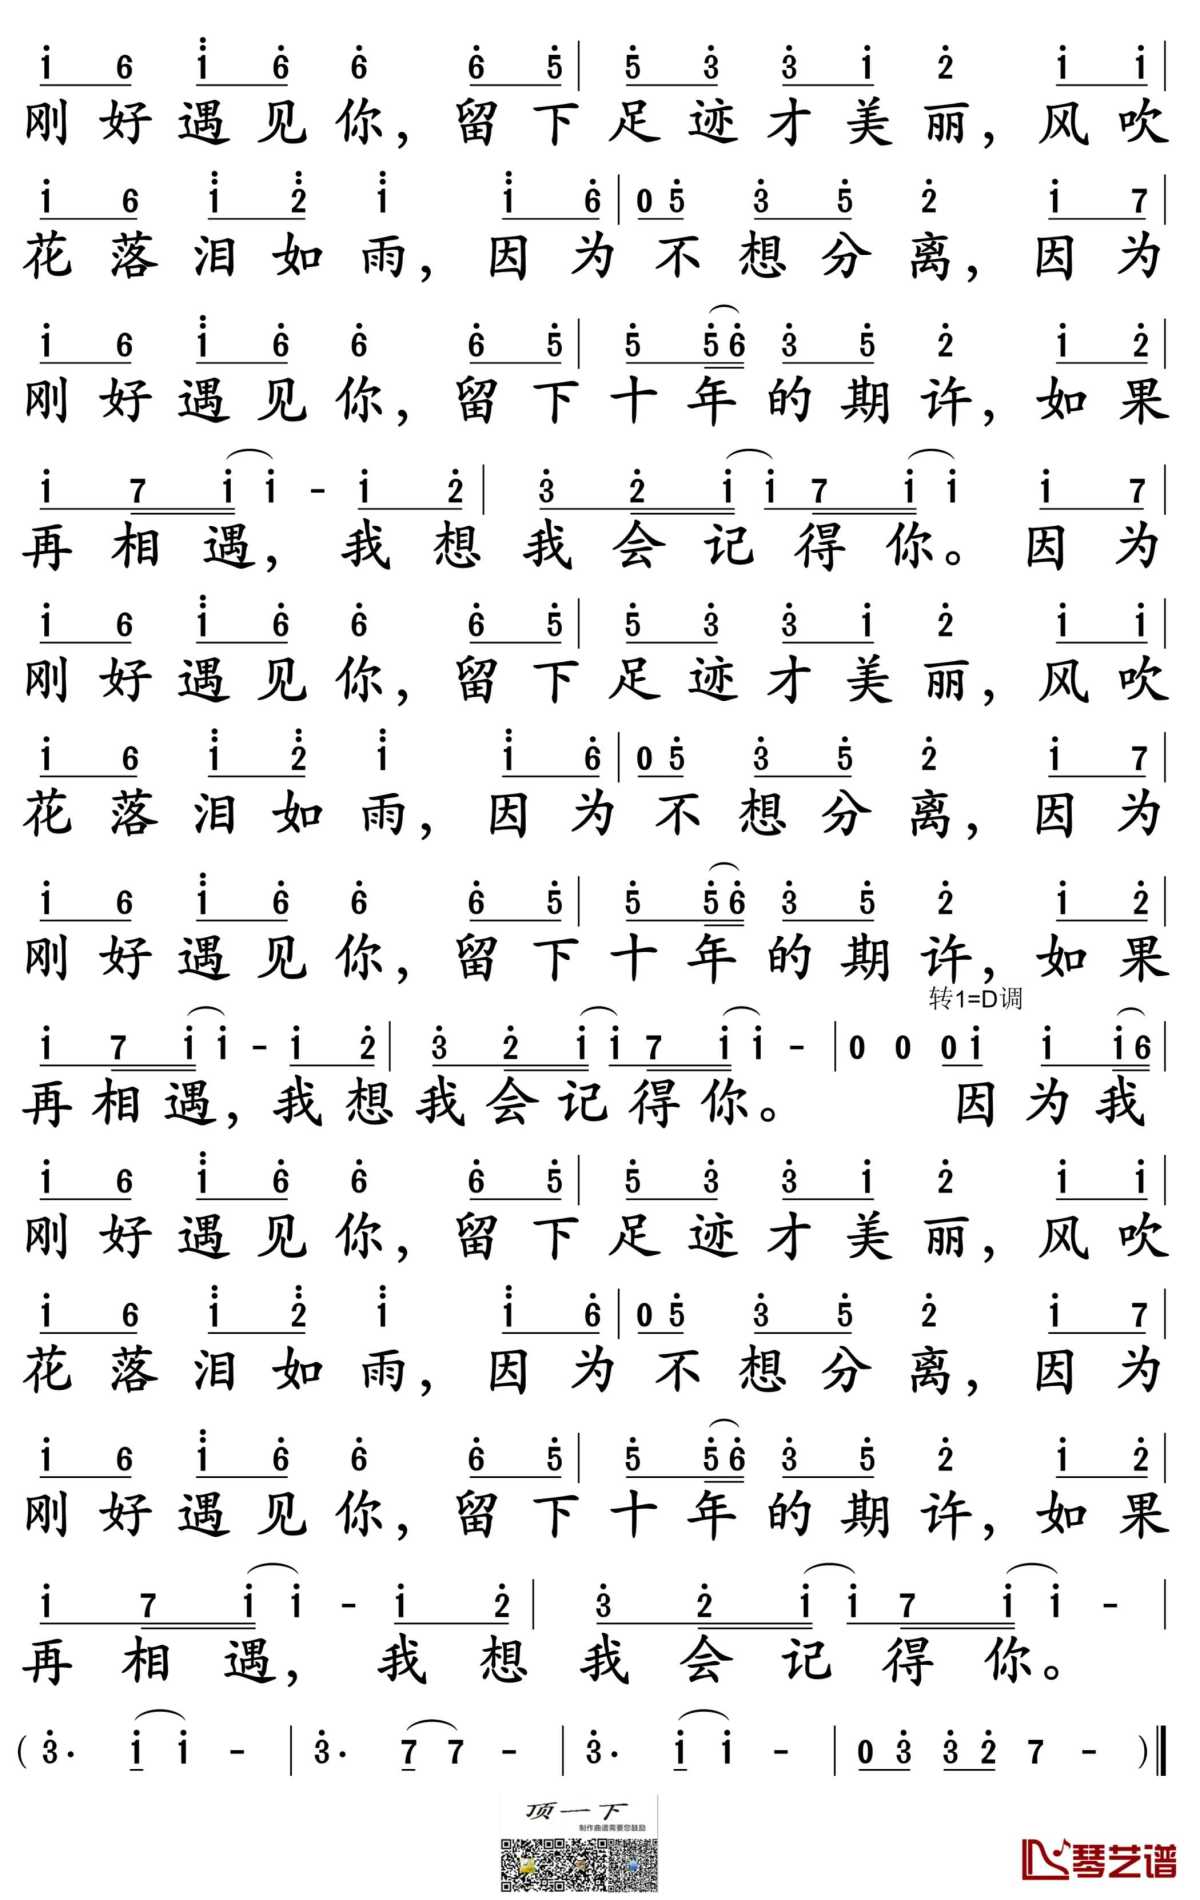 i 6 i 6 6 6 5 | 5 3 3 1 2 i i |
刚好遇见你，留下足迹才美丽，风吹
i 6 i 2 i i 6 | 0 5 3 5 2 i 7 |
花落泪如雨，因为不想分离，因为
i 6 i 6 6 6 5 | 5 5 6 3 5 2 i 2 |
刚好遇见你，留下十年的期许，如果
i 7 i i - i 2 | 3 2 i i 7 i i i 7 |
再相遇，我想我会记得你。因为
i 6 i 6 6 6 5 | 5 3 3 1 2 i i |
刚好遇见你，留下足迹才美丽，风吹
i 6 i 2 i i 6 | 0 5 3 5 2 i 7 |
花落泪如雨，因为不想分离，因为
i 6 i 6 6 6 5 | 5 5 6 3 5 2 i 2 |
刚好遇见你，留下十年的期许，如果
转1=D调
i 7 i i - i 2 | 3 2 i i 7 i i - | 0 0 0 i i i 6 |
再相遇，我想我会记得你。 因为我
i 6 i 6 6 6 5 | 5 3 3 1 2 i i |
刚好遇见你，留下足迹才美丽，风吹
i 6 i 2 i i 6 | 0 5 3 5 2 i 7 |
花落泪如雨，因为不想分离，因为
i 6 i 6 6 6 5 | 5 5 6 3 5 2 i 2 |
刚好遇见你，留下十年的期许，如果
i 7 i i - i 2 | 3 2 i i 7 i i - |
再相遇，我想我会记得你。
( 3· i i - | 3· 7 7 - | 3· i i - | 0 3 3 2 7 - )‖
顶一下
制作曲谱需要您鼓励
琴艺谱